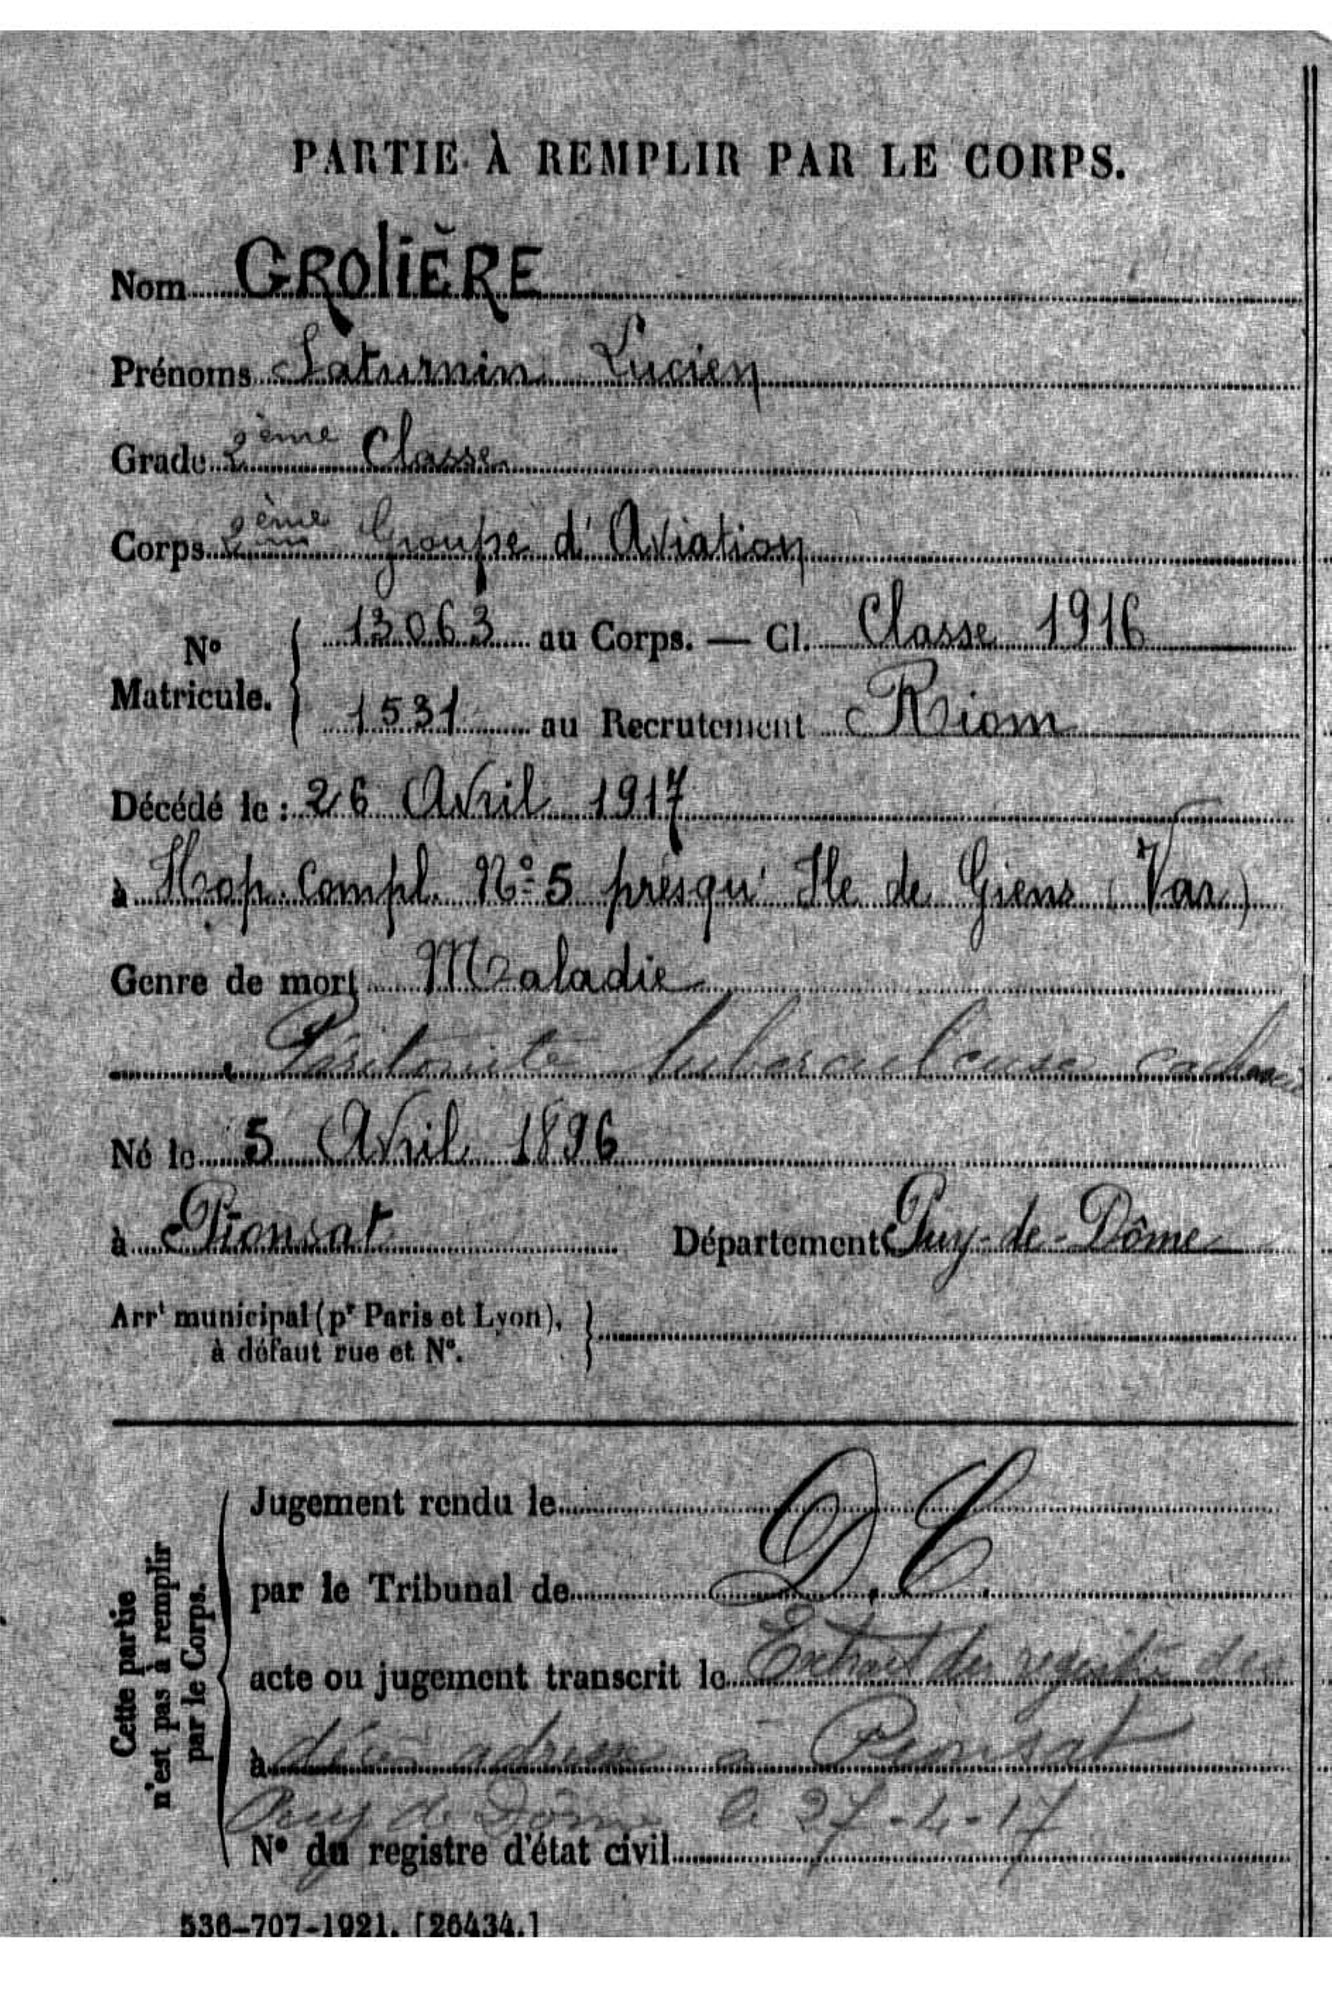 PARTIE À REMPLIR PAR LE CORPS.
Nom GROLIÈRE
Prénoms Saturnin Lucien
Grade 2ème Classe
Corps 2ème Groupe d'Aviation
N° Matricule. { 13063 au Corps. — Cl. Classe 1916
1531 au Recrutement Riom
Décédé le : 26 Avril 1917
à Hop. Compl. N° 5 presqu' Ile de Giens (Var)
Genre de mort Maladie
Péritonite tuberculeuse
Né le 5 Avril 1896
à Pionsat Département Puy-de-Dôme
Arrt municipal (pr Paris et Lyon), }
à défaut rue et N°.
Cette partie
n'est pas à remplir
par le Corps.
Jugement rendu le
par le Tribunal de D. C.
acte ou jugement transcrit le Extrait des registres des
à décès adressé à Pionsat
Puy de Dôme le 27-4-17
N° du registre d'état civil
536-707-1921. [26434.]